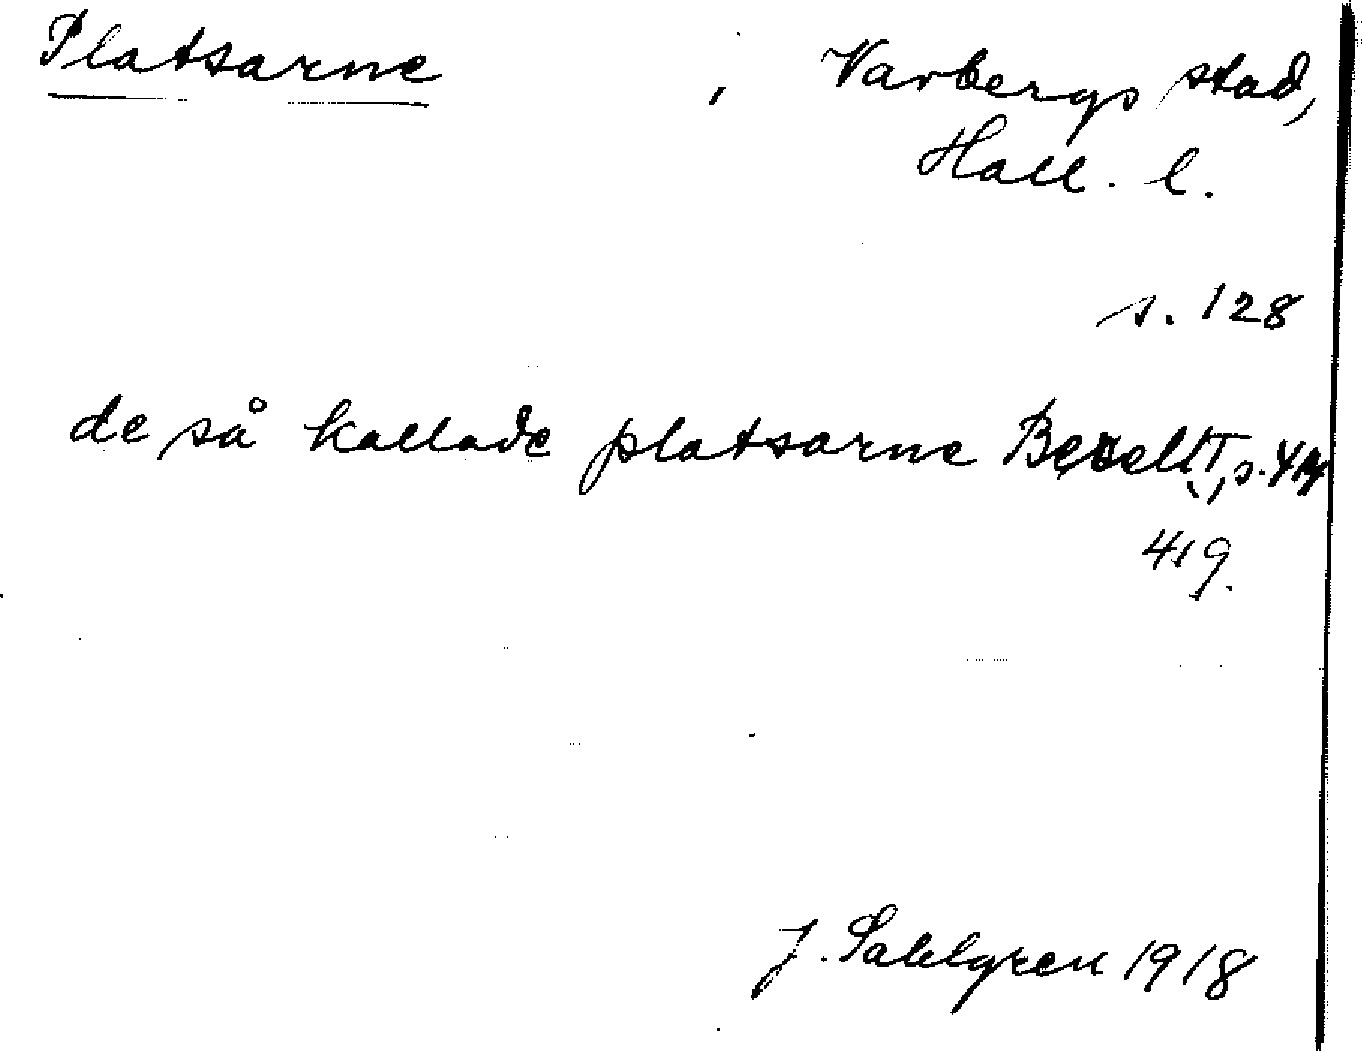 Platsarne , Varbergs stad,
Hall. l.
s. 128
de så kallade platsarne Bexell I, s.
419.
J. Sahlgren 1918